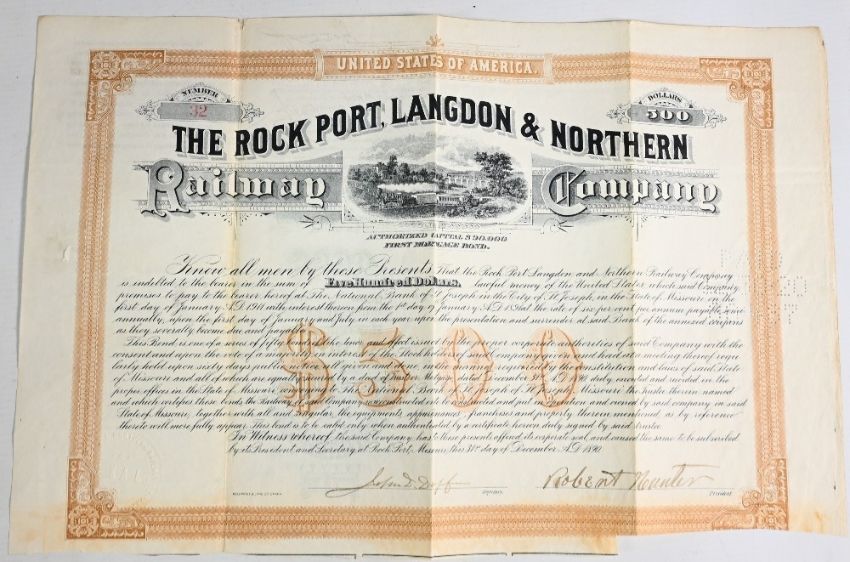 UNITED STATES OF AMERICA.
NUMBER
32
DOLLARS
500
THE ROCK PORT, LANGDON & NORTHERN
Railway Company
AUTHORIZED CAPITAL $90.000
FIRST MORTGAGE BOND.
Know all men by these Presents, That the Rock Port, Langdon and Northern Railway Company
is indebted to the bearer in the sum of Five Hundred Dollars, lawful money of the United States which said Company
promises to pay to the bearer hereof at The National Bank of St Joseph in the City of St Joseph, in the State of Missouri on the
first day of January A.D. 1910 with interest thereon from the 1st day of January A.D. at the rate of six per cent per annum payable semi-
annually, upon the first day of January and July in each year upon the presentation and surrender at said Bank of the annexed coupons
as they severally become due and payable.
This Bond is one of a series of fifty of the tenor and effect issued by the proper corporate authorities of said Company with the
consent and upon the vote of a majority in interest of the stockholders of said Company given and had at a meeting thereof regu-
larly held upon sixty days public notice all given and done in the manner required by the constitution and laws of said State
of Missouri and all of which are equally secured by a deed of trust or Mortgage dated December A.D. 1890 duly executed and recorded in the
proper offices in the State of Missouri conveying to The National Bank of St Joseph of St Joseph Missouri, the trustee therein named
and which certifies these bonds, the Railroad of said Company constructed and put in operation and owned by said company in said
State of Missouri, together with all and singular, the equipments, appurtenances franchises and property therein mentioned as by reference
thereto will more fully appear. This bond is to be valid only when authenticated by a certificate hereon duly signed by said trustee.
In Witness Whereof The said Company has to these presents affixed its corporate seal and caused the same to be subscribed
by its President and Secretary at Rock Port, Missouri this 31st day of December A.D. 1890
$500
John D. Robert Hunter
Secretary. President